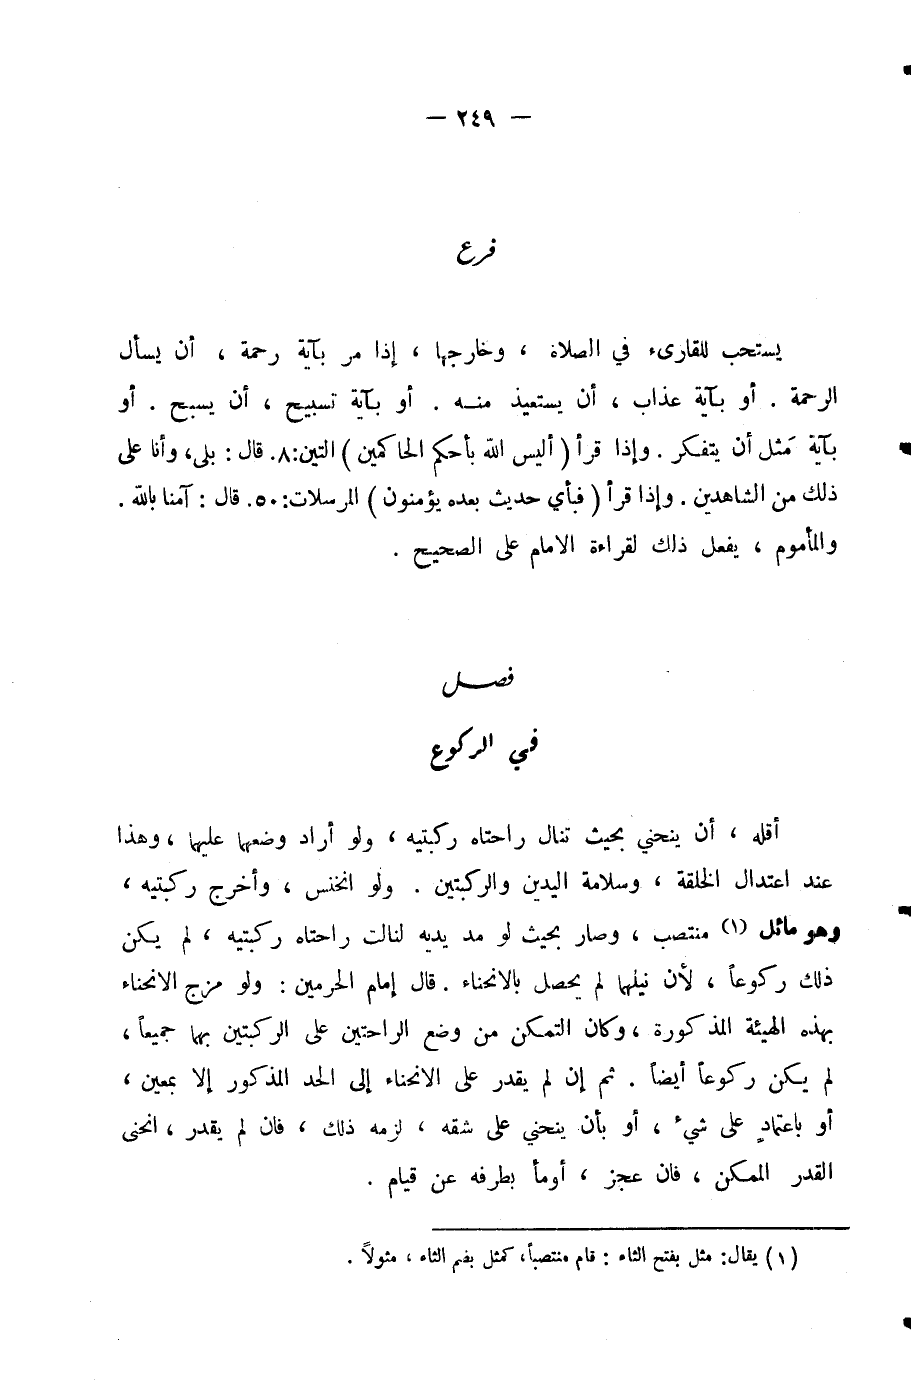 — ٢٤٩ —
فرع
يستحب للقارىء في الصلاة ، وخارجها ، إذا مر بآية رحمة ، أن يسأل
الرحمة . أو بآية عذاب ، أن يستعيذ منـه . أو بآية تسبيح ، أن يسبح . أو
بآية مَثل أن يتفكر . وإذا قرأ ( أليس الله بأحكم الحاكمين ) التين:٨. قال : بلى، وأنا على
ذلك من الشاهدين . وإذا قرأ ( فبأي حديث بعده يؤمنون ) المرسلات:٥٠. قال : آمنا بالله .
والمأموم ، يفعل ذلك لقراءة الامام على الصحيح .
فصـل
في الركوع
أقله ، أن ينحني بحيث تنال راحتاه ركبتيه ، ولو أراد وضعها عليها ، وهذا
عند اعتدال الخلقة ، وسلامة اليدين والركبتين . ولو انخنس ، وأخرج ركبتيه ،
وهو مائل (١) منتصب ، وصار بحيث لو مد يديه لنالت راحتاه ركبتيه ، لم يكن
ذلك ركوعاً ، لأن نيلها لم يحصل بالانحناء . قال إمام الحرمين : ولو مزج الانحناء
بهذه الهيئة المذكورة ، وكان التمكن من وضع الراحتين على الركبتين بها جميعاً ،
لم يكن ركوعاً أيضاً . ثم إن لم يقدر على الانحناء إلى الحد المذكور إلا بمعين ،
أو باعتمادٍ على شيء ، أو بأن ينحني على شقه ، لزمه ذلك ، فان لم يقدر ، انحنى
القدر الممكن ، فان عجز ، أومأ بطرفه عن قيام .
(١) يقال: مثل بفتح الثاء : قام منتصباً، كمثل بضم الثاء ، مثولاً .